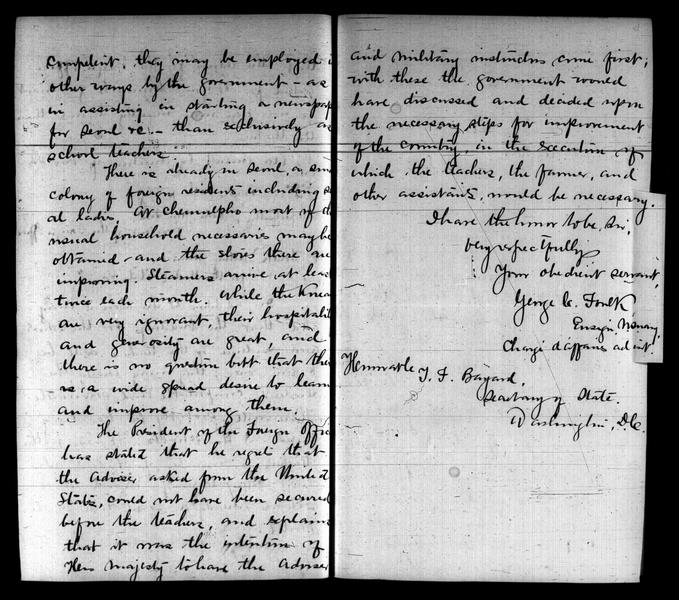 competent, they may be employed i
other ways by the government – as
in assisting in starting a newspap
for Seoul &c. – than exclusively as
school teachers.
There is already in Seoul, a sm
colony of foreign residents including s
al ladies. At Chemulpho most of th
usual household necessaries may be
obtained – and the stores there are
improving. Steamers arrive at leas
twice each month. While the Korea
are very ignorant, their hospitalit
and generosity are great, and
there is no question but that ther
is a wide spread desire to learn
and improve among them.
The President of the Foreign Offic
has stated that he regret that
the Adviser asked from the United
States, could not have been secured
before the teachers, and explains
that it was the intention of
His Majesty to have the Adviser
and military instructors come first;
with these the government would
have discussed and decided upon
the necessary steps for improvement
of the country, in the execution of
which the teachers, the farmer, and
other assistants, would be necessary.
I have the honor to be, Sir,
Very respectfully
Your obedient servant,
George C. Foulk,
Ensign U.S. Navy,
Chargé d'affaires ad int.
Honorable T. F. Bayard,
Secretary of State.
Washington, D.C.